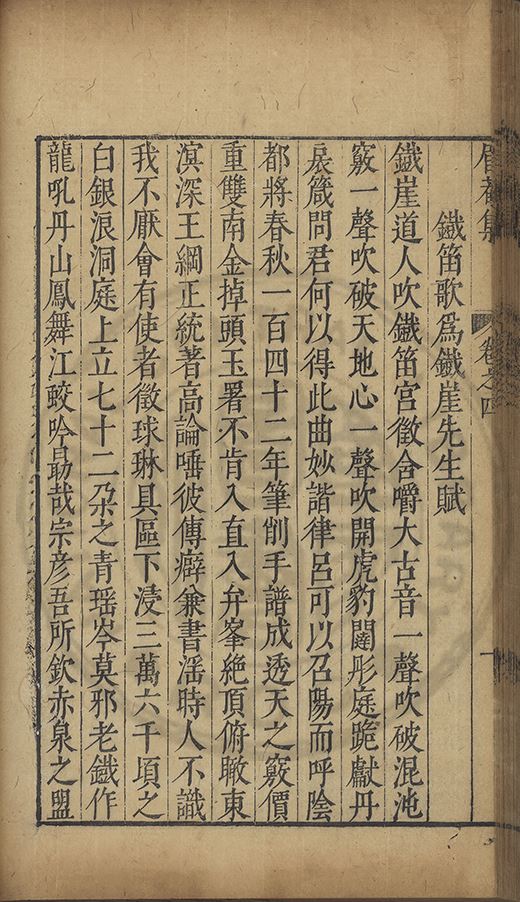 眉菴集 卷之四 十
鐵笛歌爲鐵崖先生賦
鐵崖道人吹鐵笛宮徵含嚼大古音一聲吹破混沌
竅一聲吹破天地心一聲吹開虎豹闥彤庭跪獻丹
扆箴問君何以得此曲妙諧律呂可以召陽而呼陰
都將春秋一百四十二年筆削手譜成透天之竅價
重雙南金掉頭玉署不肯入直入弁峯絶頂俯瞰東
溟深王綱正統著高論唾彼傳癖兼書滛時人不識
我不厭會有使者徵球琳具區下浸三萬六千頃之
白銀浪洞庭上立七十二朶之青瑶岑莫邪老鐵作
龍吼丹山鳳舞江蛟吟勗哉宗彦吾所欽赤泉之盟